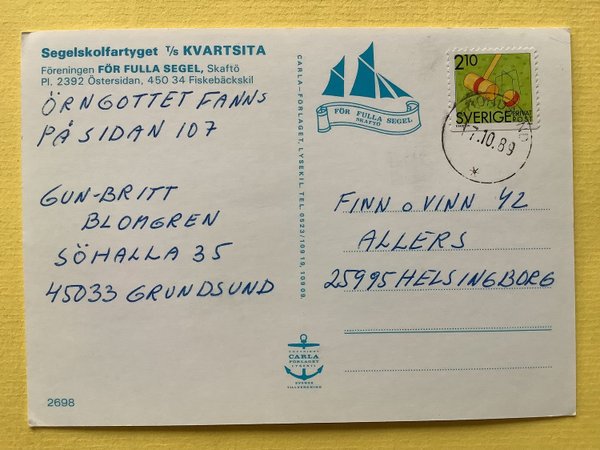 Segelskolfartyget T/s KVARTSITA
Föreningen FÖR FULLA SEGEL, Skaftö
Pl. 2392 Östersidan, 450 34 Fiskebäckskil
ÖRNGOTTET FANNS
PÅ SIDAN 107
GUN-BRITT
BLOMGREN
SÖHALLA 35
45033 GRUNDSUND
2698
CARLA-FÖRLAGET, LYSEKIL. TEL. 0523/109 19, 109 09.
FÖR FULLA SEGEL
SKAFTÖ
COPYRIGHT
CARLA
FÖRLAGET
LYSEKIL
SVENSK
TILLVERKNING
210
SVERIGE
7.10.89
FINN o VINN 42
ALLERS
25995 HELSINGBORG